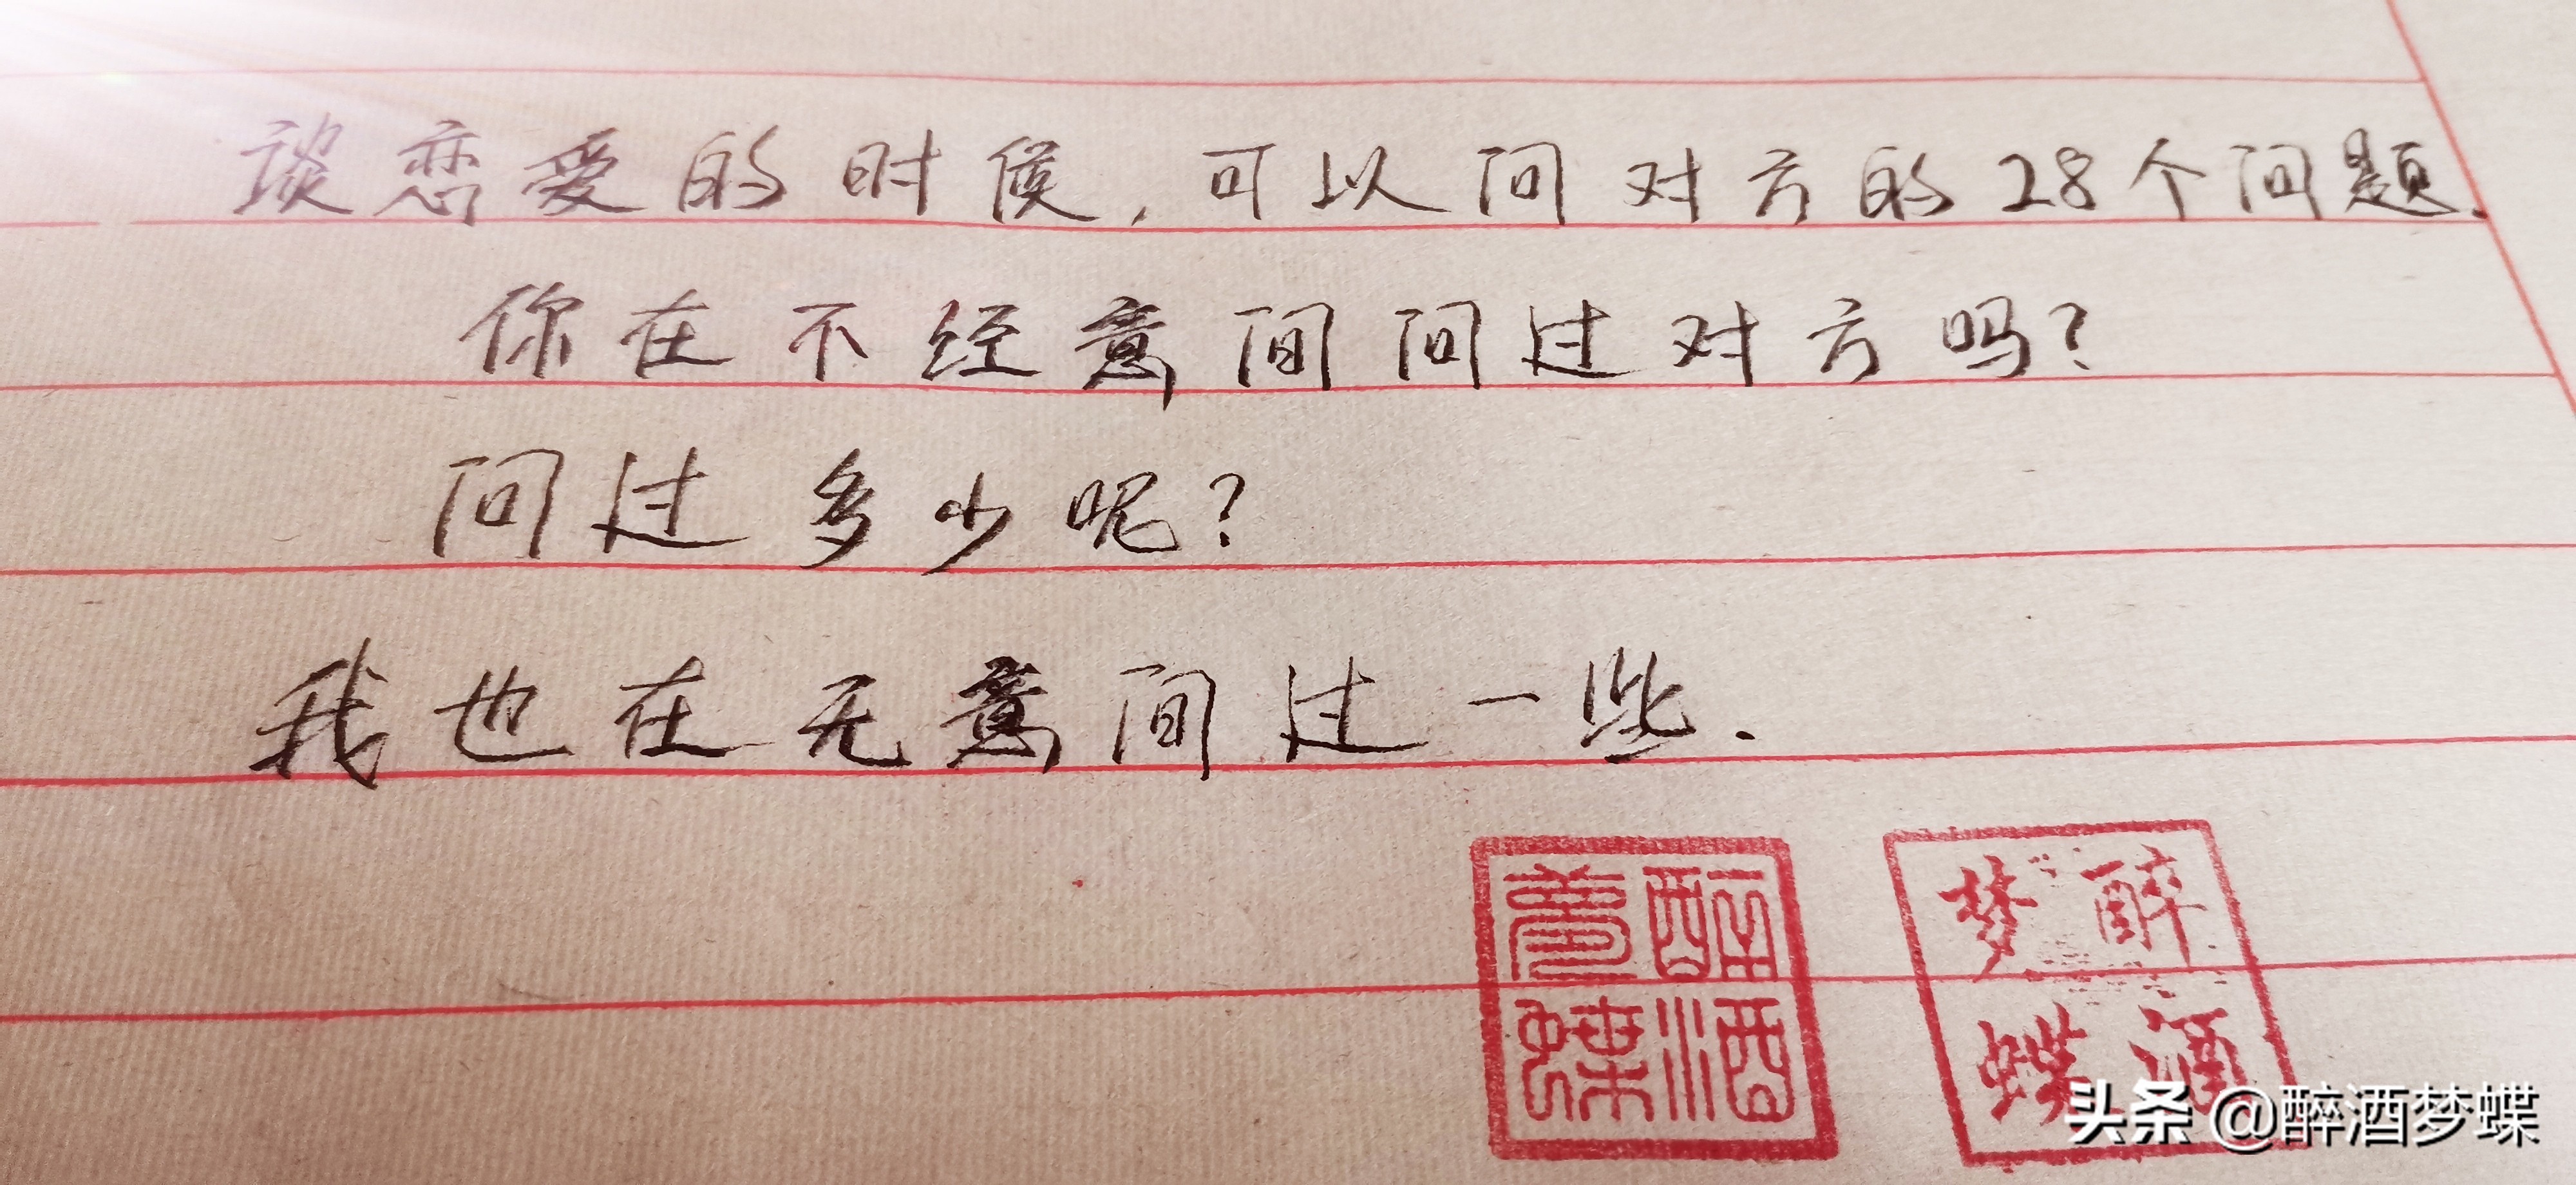 谈恋爱的时候,可以问对方的28个问题.
你在不经意间问过对方吗?
问过多少呢?
我也在无意间过一些.
醉酒梦蝶
醉酒梦蝶
头条 @醉酒梦蝶